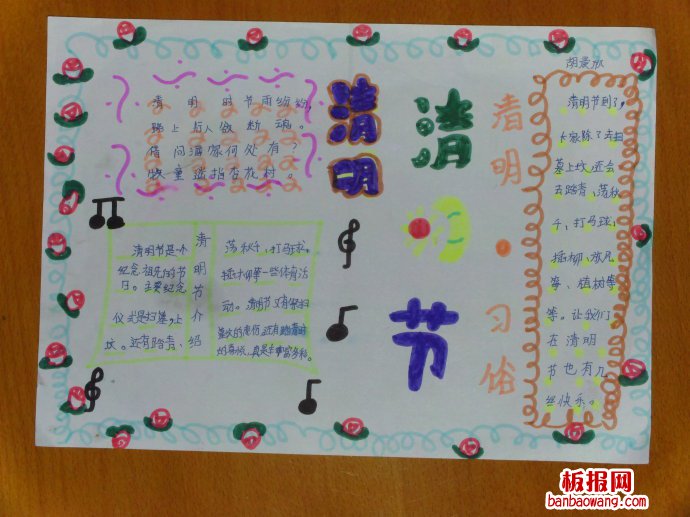 清明时节雨纷纷,
路上行人欲断魂。
借问酒家何处有?
牧童遥指杏花村。
清明
清明节
清明·习俗
清明节介绍
清明节是个
纪念祖先的节
日。主要纪念
仪式是扫墓,上
坟。还有踏青、
荡秋千、打马球、
插柳等一些体育活
动。清明节又有祭扫
的悲伤,还有踏青时
的喜悦,真是丰富多彩。
清明节到了,
大家除了去扫
墓上坟,还会
去踏青、荡秋
千、打马球、
插柳、放风
筝、植树等
等。让我们
在清明
节也有几
丝快乐。
板报网
banbaowang.com